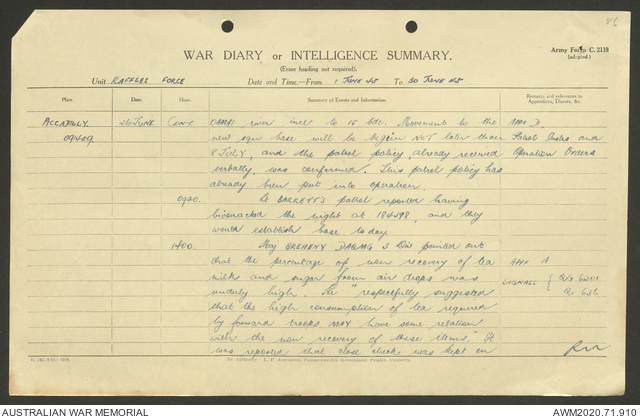 86
Army Form C. 2118
(adapted.)
WAR DIARY or INTELLIGENCE SUMMARY.
(Erase heading not required).
Unit RAFFLES FORCE Date and Time—From 1 JUNE 45 To 30 JUNE 45
Place. Date. Hour. Summary of Events and Information. Remarks and references to Appendices, Diaries, &c.
PICCADILLY. 26 JUNE CONT. river incl to 15 bde. Movement to the APPX. D.
094289. new sqn base will be begun NOT later than Patrol Instns and
8 JULY, and the patrol policy, already received Operation Orders
verbally, was confirmed. This patrol policy has
already been put into operation.
0920. Lt BARRETT'S patrol reported having
bivouacked the night at 184598, and they
would establish base to-day.
1400. Maj DADMG 3 Div pointed out
that the percentage of non recovery of tea APPX A
milk and sugar from air drops was SIGNALS { 6201
unduly high. He "respectfully suggested Qr 636
that the high consumption of tea required
by forward troops MAY have some relation
with the non recovery of these items. It
was reported that close check was kept on
By Authority: L. F. Johnston, Commonwealth Government Printer, Canberra.
AUSTRALIAN WAR MEMORIAL
AWM2020.71.910